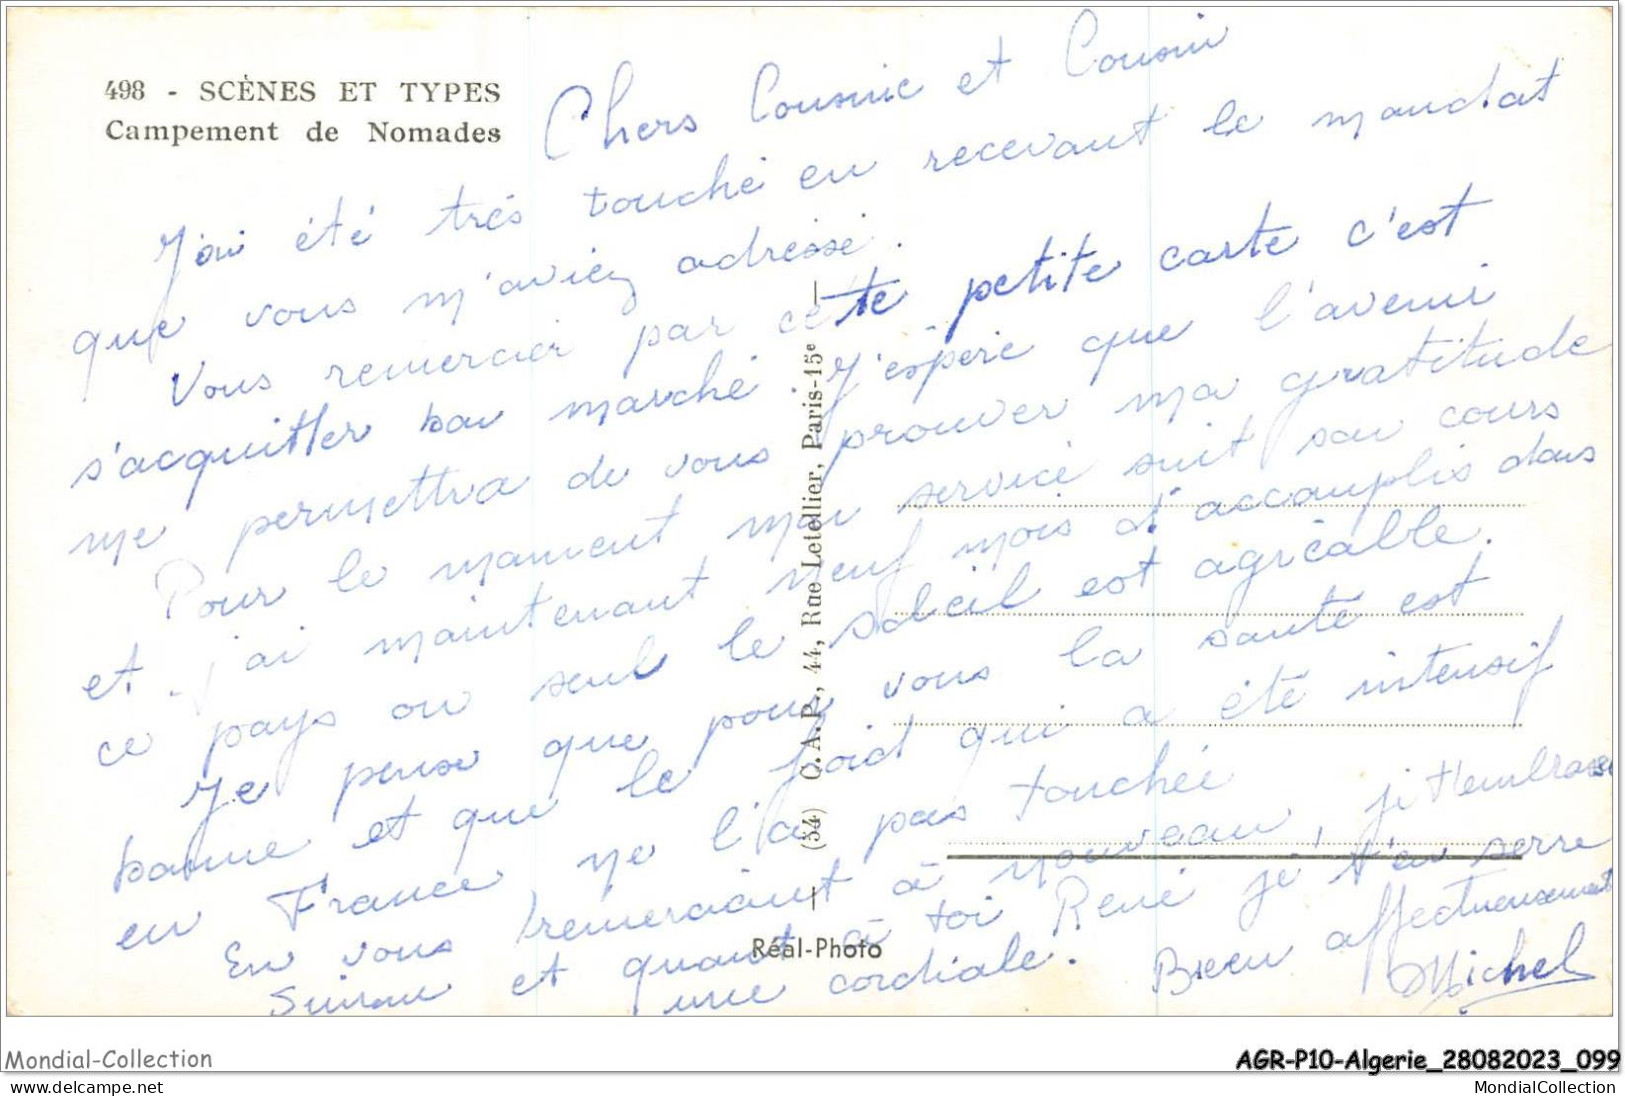 498 - SCÈNES ET TYPES
Campement de Nomades
Chers Cousine et Cousin
J'ai été trés touché en recevant le mandat
que vous m'aviez adréssé.
Vous remercier par cette petite carte c'est
s'acquitter bon marché. J'espére que l'avenir
me permettra de vous prouver ma gratitude
Pour le moment mon service suit son cours
et j'ai maintenant neuf mois d'accomplis dans
ce pays ou seul le soleil est agréable.
Je pense que pour vous la santé est
bonne et que le froid qui a été intensif
en France ne l'a pas touchée
En vous remerciant à nouveau, je t'embrasse
et quant à toi René je t'en serre
une cordiale. Bien affectueusement
Michel
(54) O.A.P., 44, Rue Letellier, Paris-15e
Réal-Photo
Mondial-Collection
AGR-P10-Algerie_28082023_099
www.delcampe.net
MondialCollection